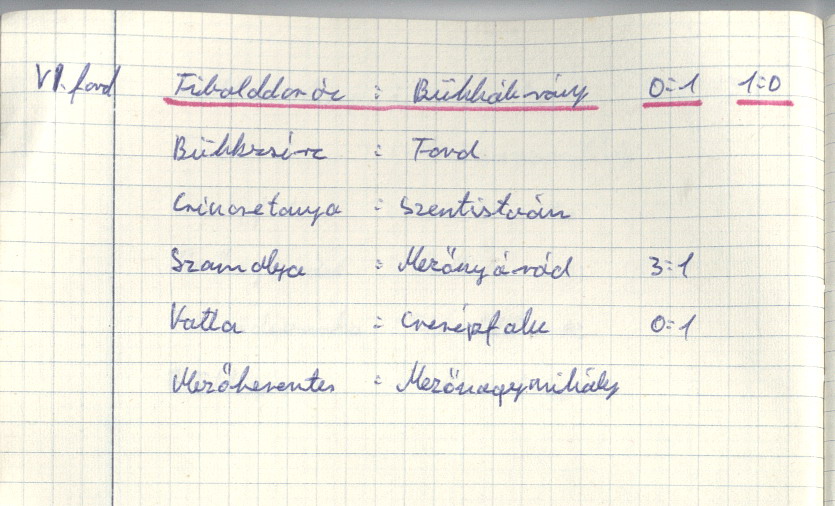 VI. ford Tibolddaróc : Bükkábrány 0:1 1:0
Bükkzsérc : Tard
Csincsetanya : Szentistván
Szomolya : Mezőnyárád 3:1
Vatta : Cserépfalu 0:1
Mezőkeresztes : Mezőnagymihály